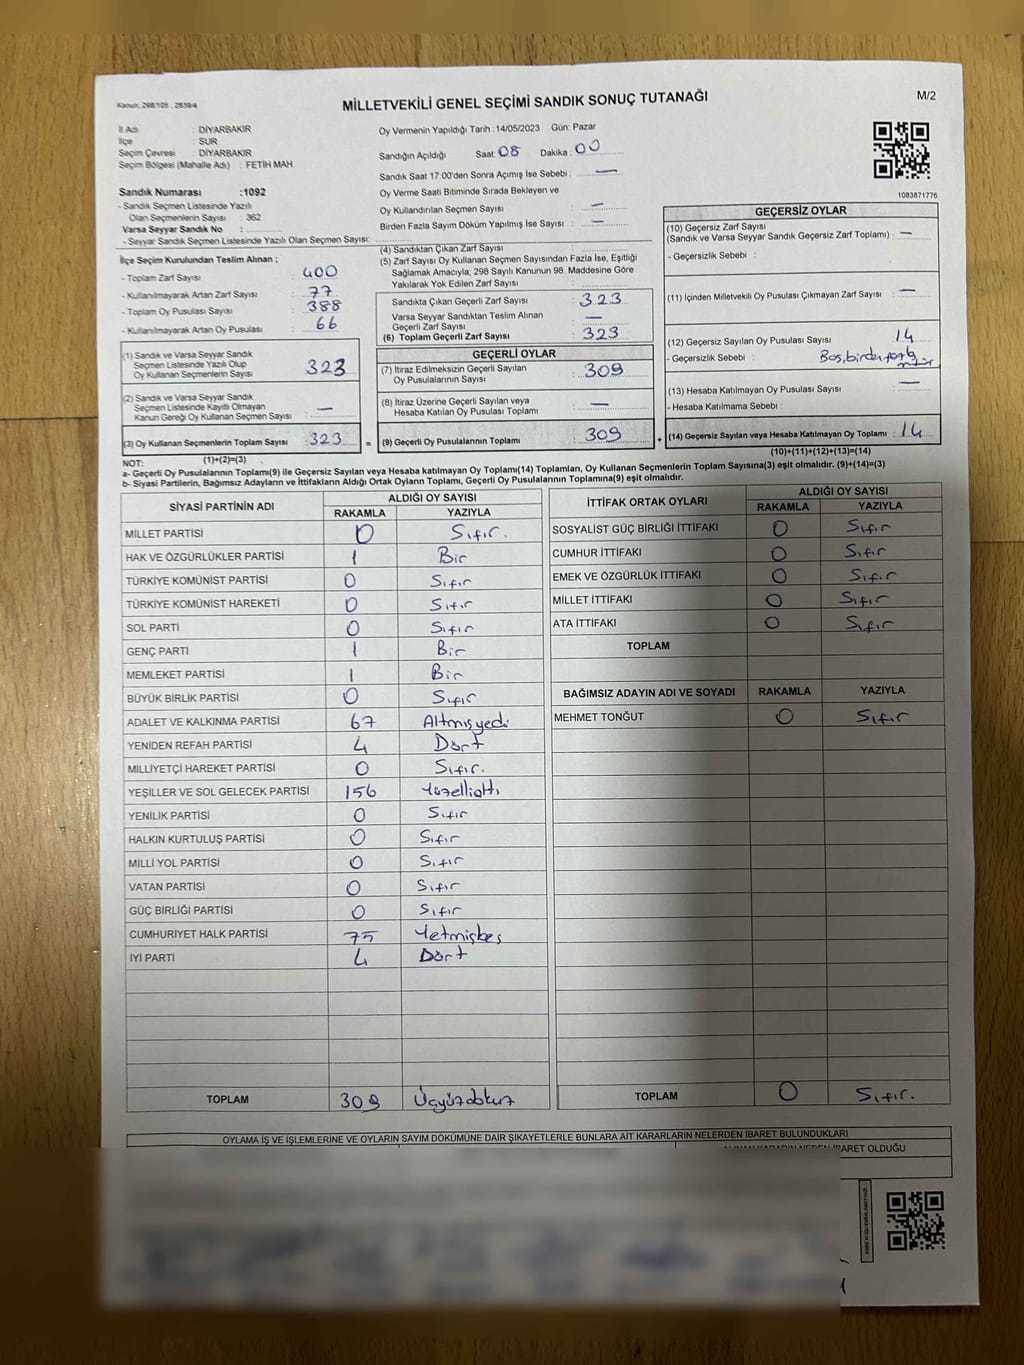 Kanun: 298/105 , 2839/4
MİLLETVEKİLİ GENEL SEÇİMİ SANDIK SONUÇ TUTANAĞI
M/2
İl Adı : DİYARBAKIR
İlçe : SUR
Seçim Çevresi : DİYARBAKIR
Seçim Bölgesi (Mahalle Adı) : FETİH MAH.
Sandık Numarası :1092
- Sandık Seçmen Listesinde Yazılı
Olan Seçmenlerin Sayısı : 362
Varsa Seyyar Sandık No :
- Seyyar Sandık Seçmen Listesinde Yazılı Olan Seçmen Sayısı:
İlçe Seçim Kurulundan Teslim Alınan ;
- Toplam Zarf Sayısı : 400
- Kullanılmayarak Artan Zarf Sayısı : 77
- Toplam Oy Pusulası Sayısı : 388
- Kullanılmayarak Artan Oy Pusulası : 66
(1) Sandık ve Varsa Seyyar Sandık
Seçmen Listesinde Yazılı Olup
Oy Kullanan Seçmenlerin Sayısı : 323
(2) Sandık ve Varsa Seyyar Sandık
Seçmen Listesinde Kayıtlı Olmayan
Kanun Gereği Oy Kullanan Seçmen Sayısı : —
(3) Oy Kullanan Seçmenlerin Toplam Sayısı : 323 =
(1)+(2)=(3)
Oy Vermenin Yapıldığı Tarih :14/05/2023 Gün: Pazar
Sandığın Açıldığı Saat: 08 Dakika : 00
Sandık Saat 17:00'den Sonra Açımış İse Sebebi : —
Oy Verme Saati Bitiminde Sırada Bekleyen ve
Oy Kullandırılan Seçmen Sayısı : —
Birden Fazla Sayım Döküm Yapılmış İse Sayısı : —
(4) Sandıktan Çıkan Zarf Sayısı :
(5) Zarf Sayısı Oy Kullanan Seçmen Sayısından Fazla İse, Eşitliği
Sağlamak Amacıyla; 298 Sayılı Kanunun 98. Maddesine Göre
Yakılarak Yok Edilen Zarf Sayısı :
Sandıkta Çıkan Geçerli Zarf Sayısı : 323
Varsa Seyyar Sandıktan Teslim Alınan
Geçerli Zarf Sayısı : —
(6) Toplam Geçerli Zarf Sayısı : 323
GEÇERLİ OYLAR
(7) İtiraz Edilmeksizin Geçerli Sayılan
Oy Pusulalarının Sayısı : 309
(8) İtiraz Üzerine Geçerli Sayılan veya
Hesaba Katılan Oy Pusulası Toplamı : —
(9) Geçerli Oy Pusulalarının Toplamı : 309 +
1083871776
GEÇERSİZ OYLAR
(10) Geçersiz Zarf Sayısı
(Sandık ve Varsa Seyyar Sandık Geçersiz Zarf Toplamı) : —
- Geçersizlik Sebebi :
(11) İçinden Milletvekili Oy Pusulası Çıkmayan Zarf Sayısı : —
(12) Geçersiz Sayılan Oy Pusulası Sayısı : 14
- Geçersizlik Sebebi : Boş,birden
(13) Hesaba Katılmayan Oy Pusulası Sayısı : —
- Hesaba Katılmama Sebebi :
(14) Geçersiz Sayılan veya Hesaba Katılmayan Oy Toplamı : 14
(10)+(11)+(12)+(13)=(14)
NOT:
a- Geçerli Oy Pusulalarının Toplamı(9) ile Geçersiz Sayılan veya Hesaba katılmayan Oy Toplamı(14) Toplamları, Oy Kullanan Seçmenlerin Toplam Sayısına(3) eşit olmalıdır. (9)+(14)=(3)
b- Siyasi Partilerin, Bağımsız Adayların ve İttifakların Aldığı Ortak Oyların Toplamı, Geçerli Oy Pusulalarının Toplamına(9) eşit olmalıdır.
SİYASİ PARTİNİN ADI ALDIĞI OY SAYISI
RAKAMLA YAZIYLA
MİLLET PARTİSİ 0 Sıfır.
HAK VE ÖZGÜRLÜKLER PARTİSİ 1 Bir
TÜRKİYE KOMÜNİST PARTİSİ 0 Sıfır
TÜRKİYE KOMÜNİST HAREKETİ 0 Sıfır
SOL PARTİ 0 Sıfır
GENÇ PARTİ 1 Bir
MEMLEKET PARTİSİ 1 Bir
BÜYÜK BİRLİK PARTİSİ 0 Sıfır
ADALET VE KALKINMA PARTİSİ 67 Altmışyedi
YENİDEN REFAH PARTİSİ 4 Dört
MİLLİYETÇİ HAREKET PARTİSİ 0 Sıfır.
YEŞİLLER VE SOL GELECEK PARTİSİ 156 Yüzellialtı
YENİLİK PARTİSİ 0 Sıfır
HALKIN KURTULUŞ PARTİSİ 0 Sıfır
MİLLİ YOL PARTİSİ 0 Sıfır
VATAN PARTİSİ 0 Sıfır
GÜÇ BİRLİĞİ PARTİSİ 0 Sıfır
CUMHURİYET HALK PARTİSİ 75 Yetmişbeş
İYİ PARTİ 4 Dört
TOPLAM 309 Üçyüzdokuz
İTTİFAK ORTAK OYLARI ALDIĞI OY SAYISI
RAKAMLA YAZIYLA
SOSYALİST GÜÇ BİRLİĞİ İTTİFAKI 0 Sıfır
CUMHUR İTTİFAKI 0 Sıfır
EMEK VE ÖZGÜRLÜK İTTİFAKI 0 Sıfır
MİLLET İTTİFAKI 0 Sıfır
ATA İTTİFAKI 0 Sıfır
TOPLAM
BAĞIMSIZ ADAYIN ADI VE SOYADI RAKAMLA YAZIYLA
MEHMET TONĞUT 0 Sıfır
TOPLAM 0 Sıfır.
OYLAMA İŞ VE İŞLEMLERİNE VE OYLARIN SAYIM DÖKÜMÜNE DAİR ŞİKAYETLERLE BUNLARA AİT KARARLARIN NELERDEN İBARET BULUNDUKLARI
İBARET OLDUĞU